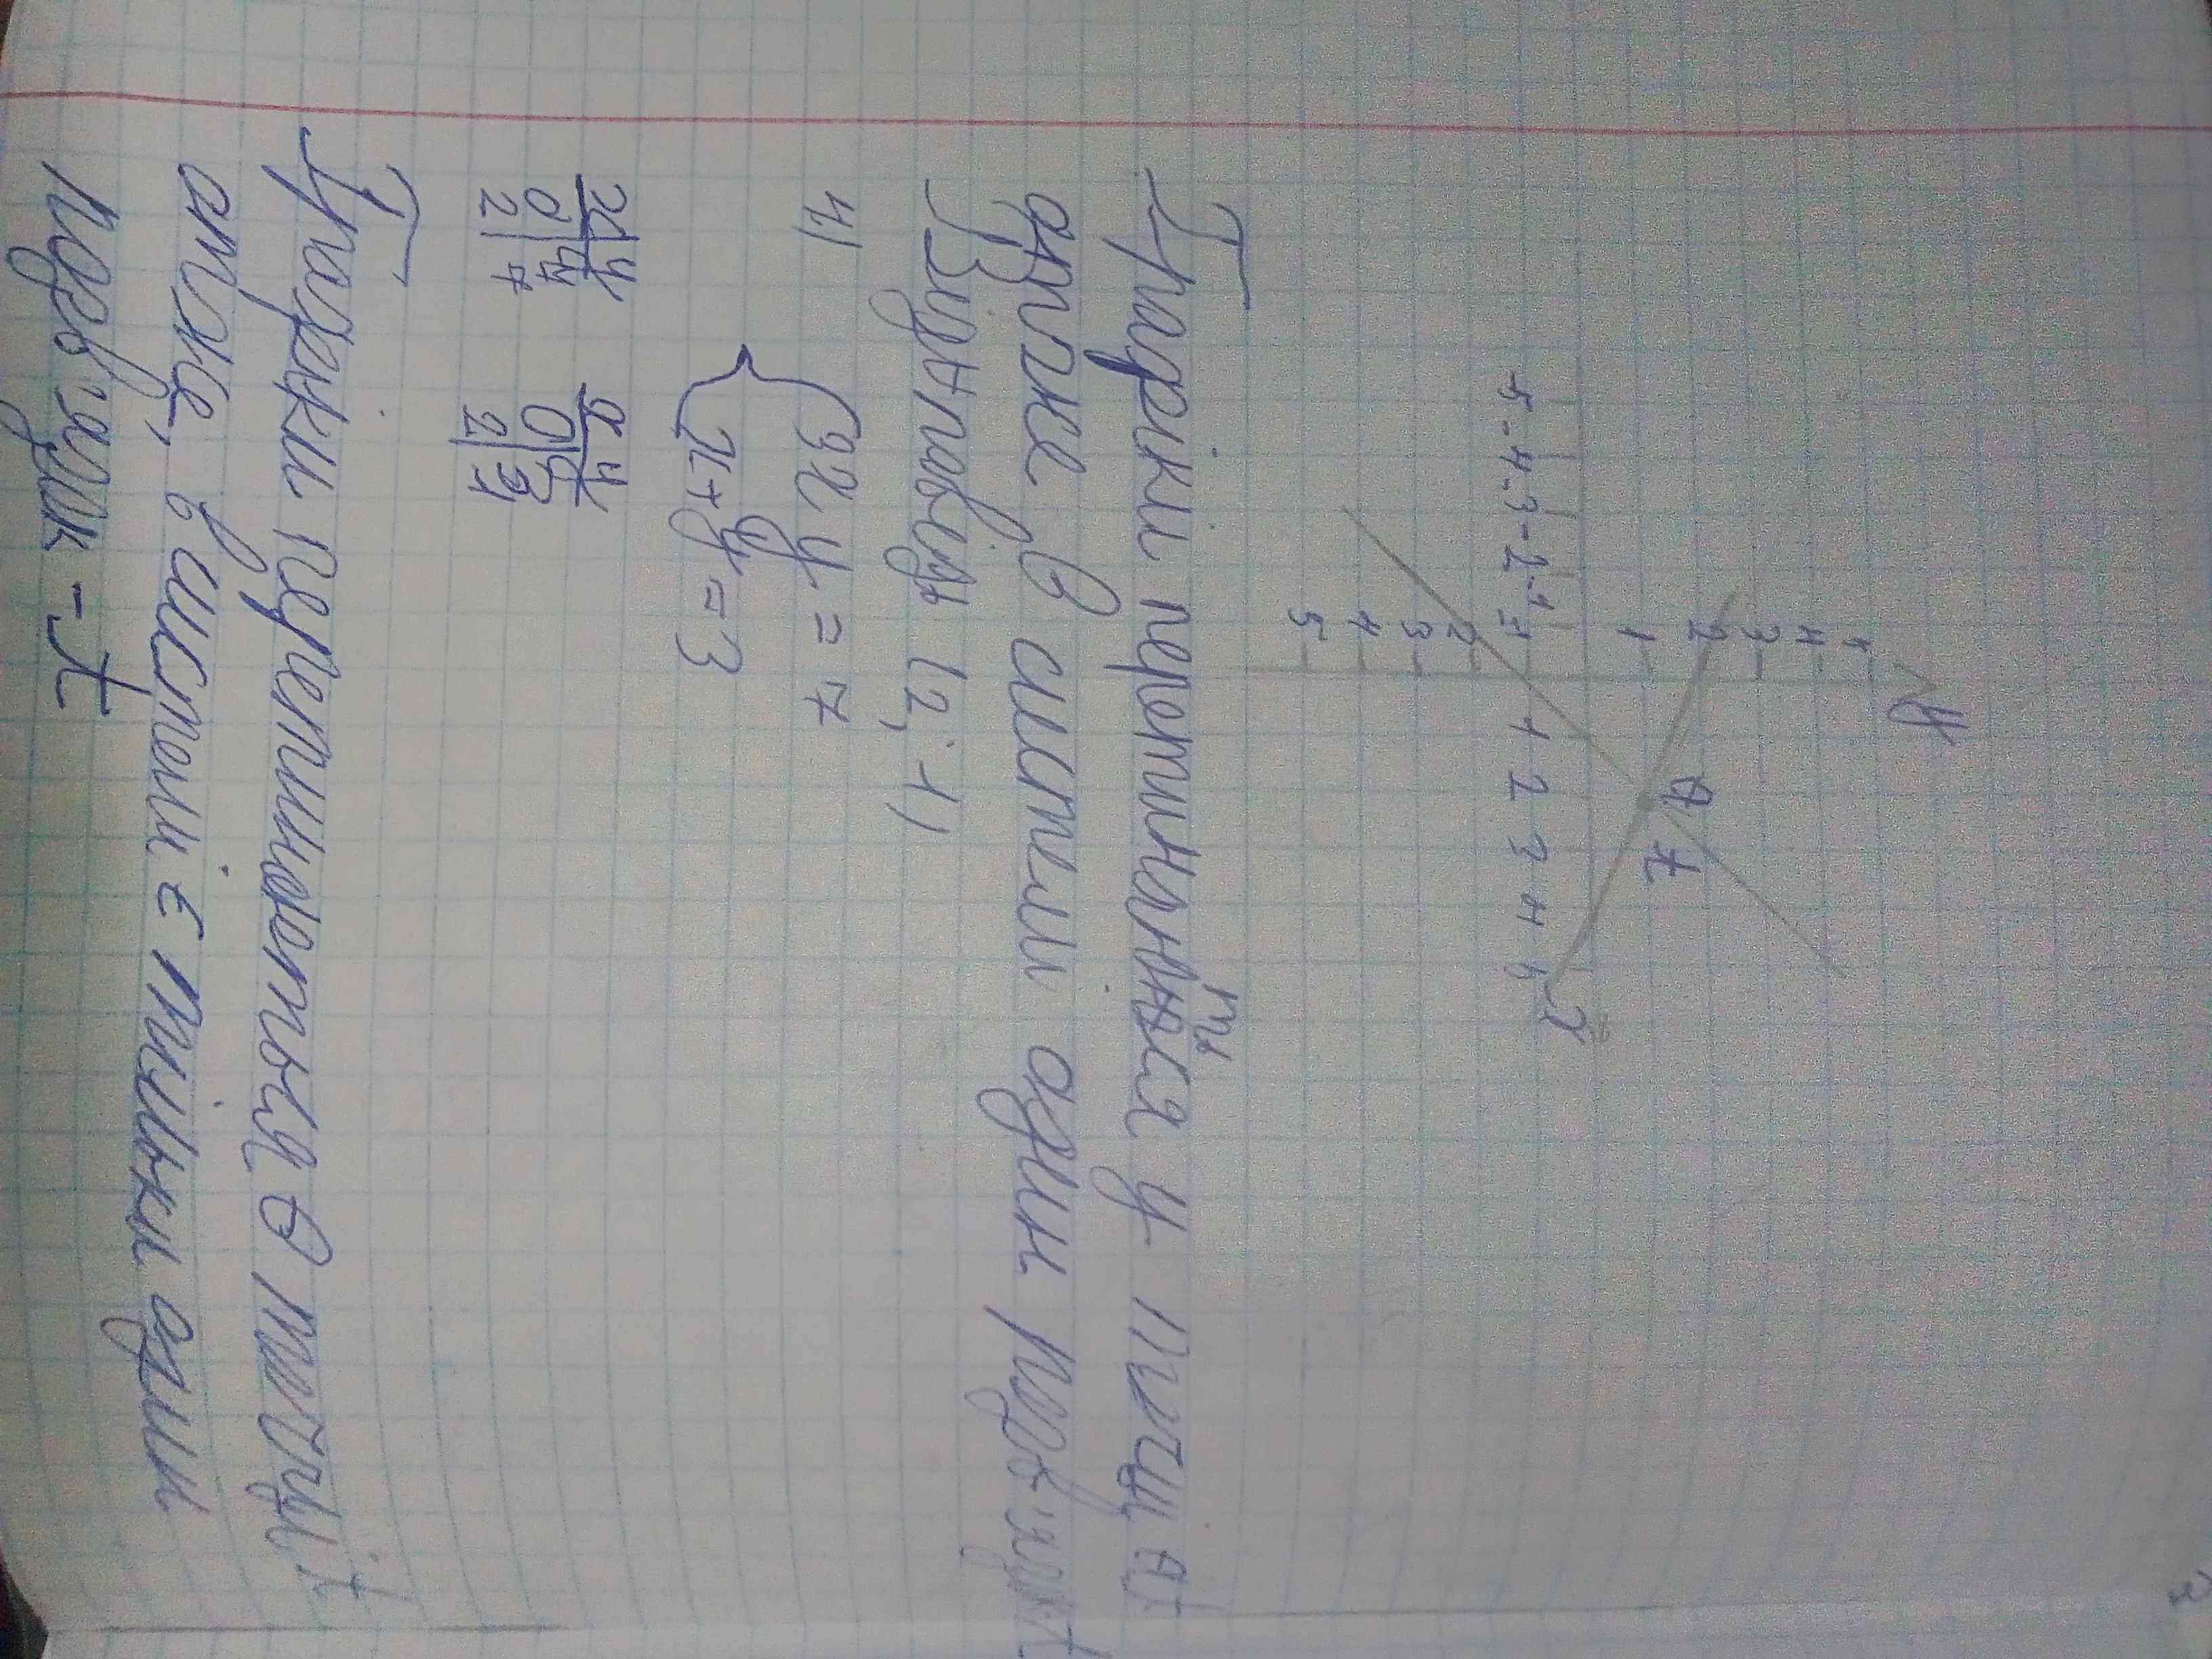 y
5
4
3
2
1
A
t
5 -4 -3 -2 -1
1 2 3 4 5 x
-1
2
3
4
5
Графікі перетинаються у точці At
отже в системи один розв'язокt
Відповідь (2; 1)
4) { 3x y = 7
x + y = 3
x|y x|y
0|4 0|3
2|7 2|3
Графіки перетинаються в точці t
отже, в системі є тільки один
розв'язок - t